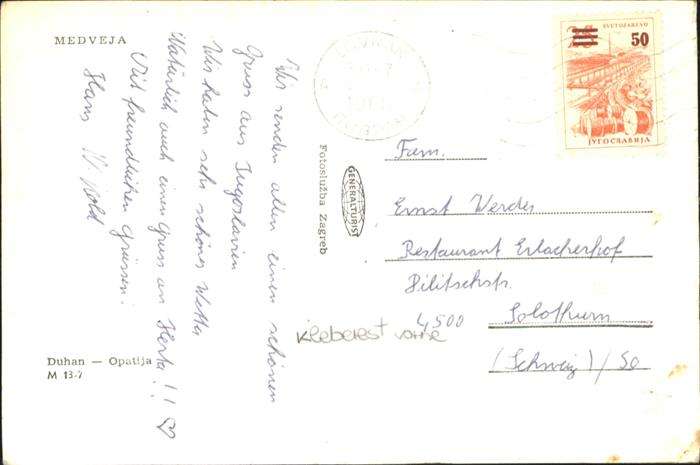 MEDVEJA
Wir senden allen einen schönen
Gruss aus Jugoslavien
Wir haben sehr schönes Wetter
Natürlich auch einen Gruss an Herta!!
Mit freundlichen Grüssen!
Hans
Duhan — Opatija
M 13-7
Fotoslužba Zagreb
GENERALTURIST
SVETOZAREVO
50
JUGOSLAVIJA
Fam.
Ernst Werder
Restaurant Erlacherhof
Bilitschstr.
4500 Solothurn
(Schweiz)/So
Kleberest vorne